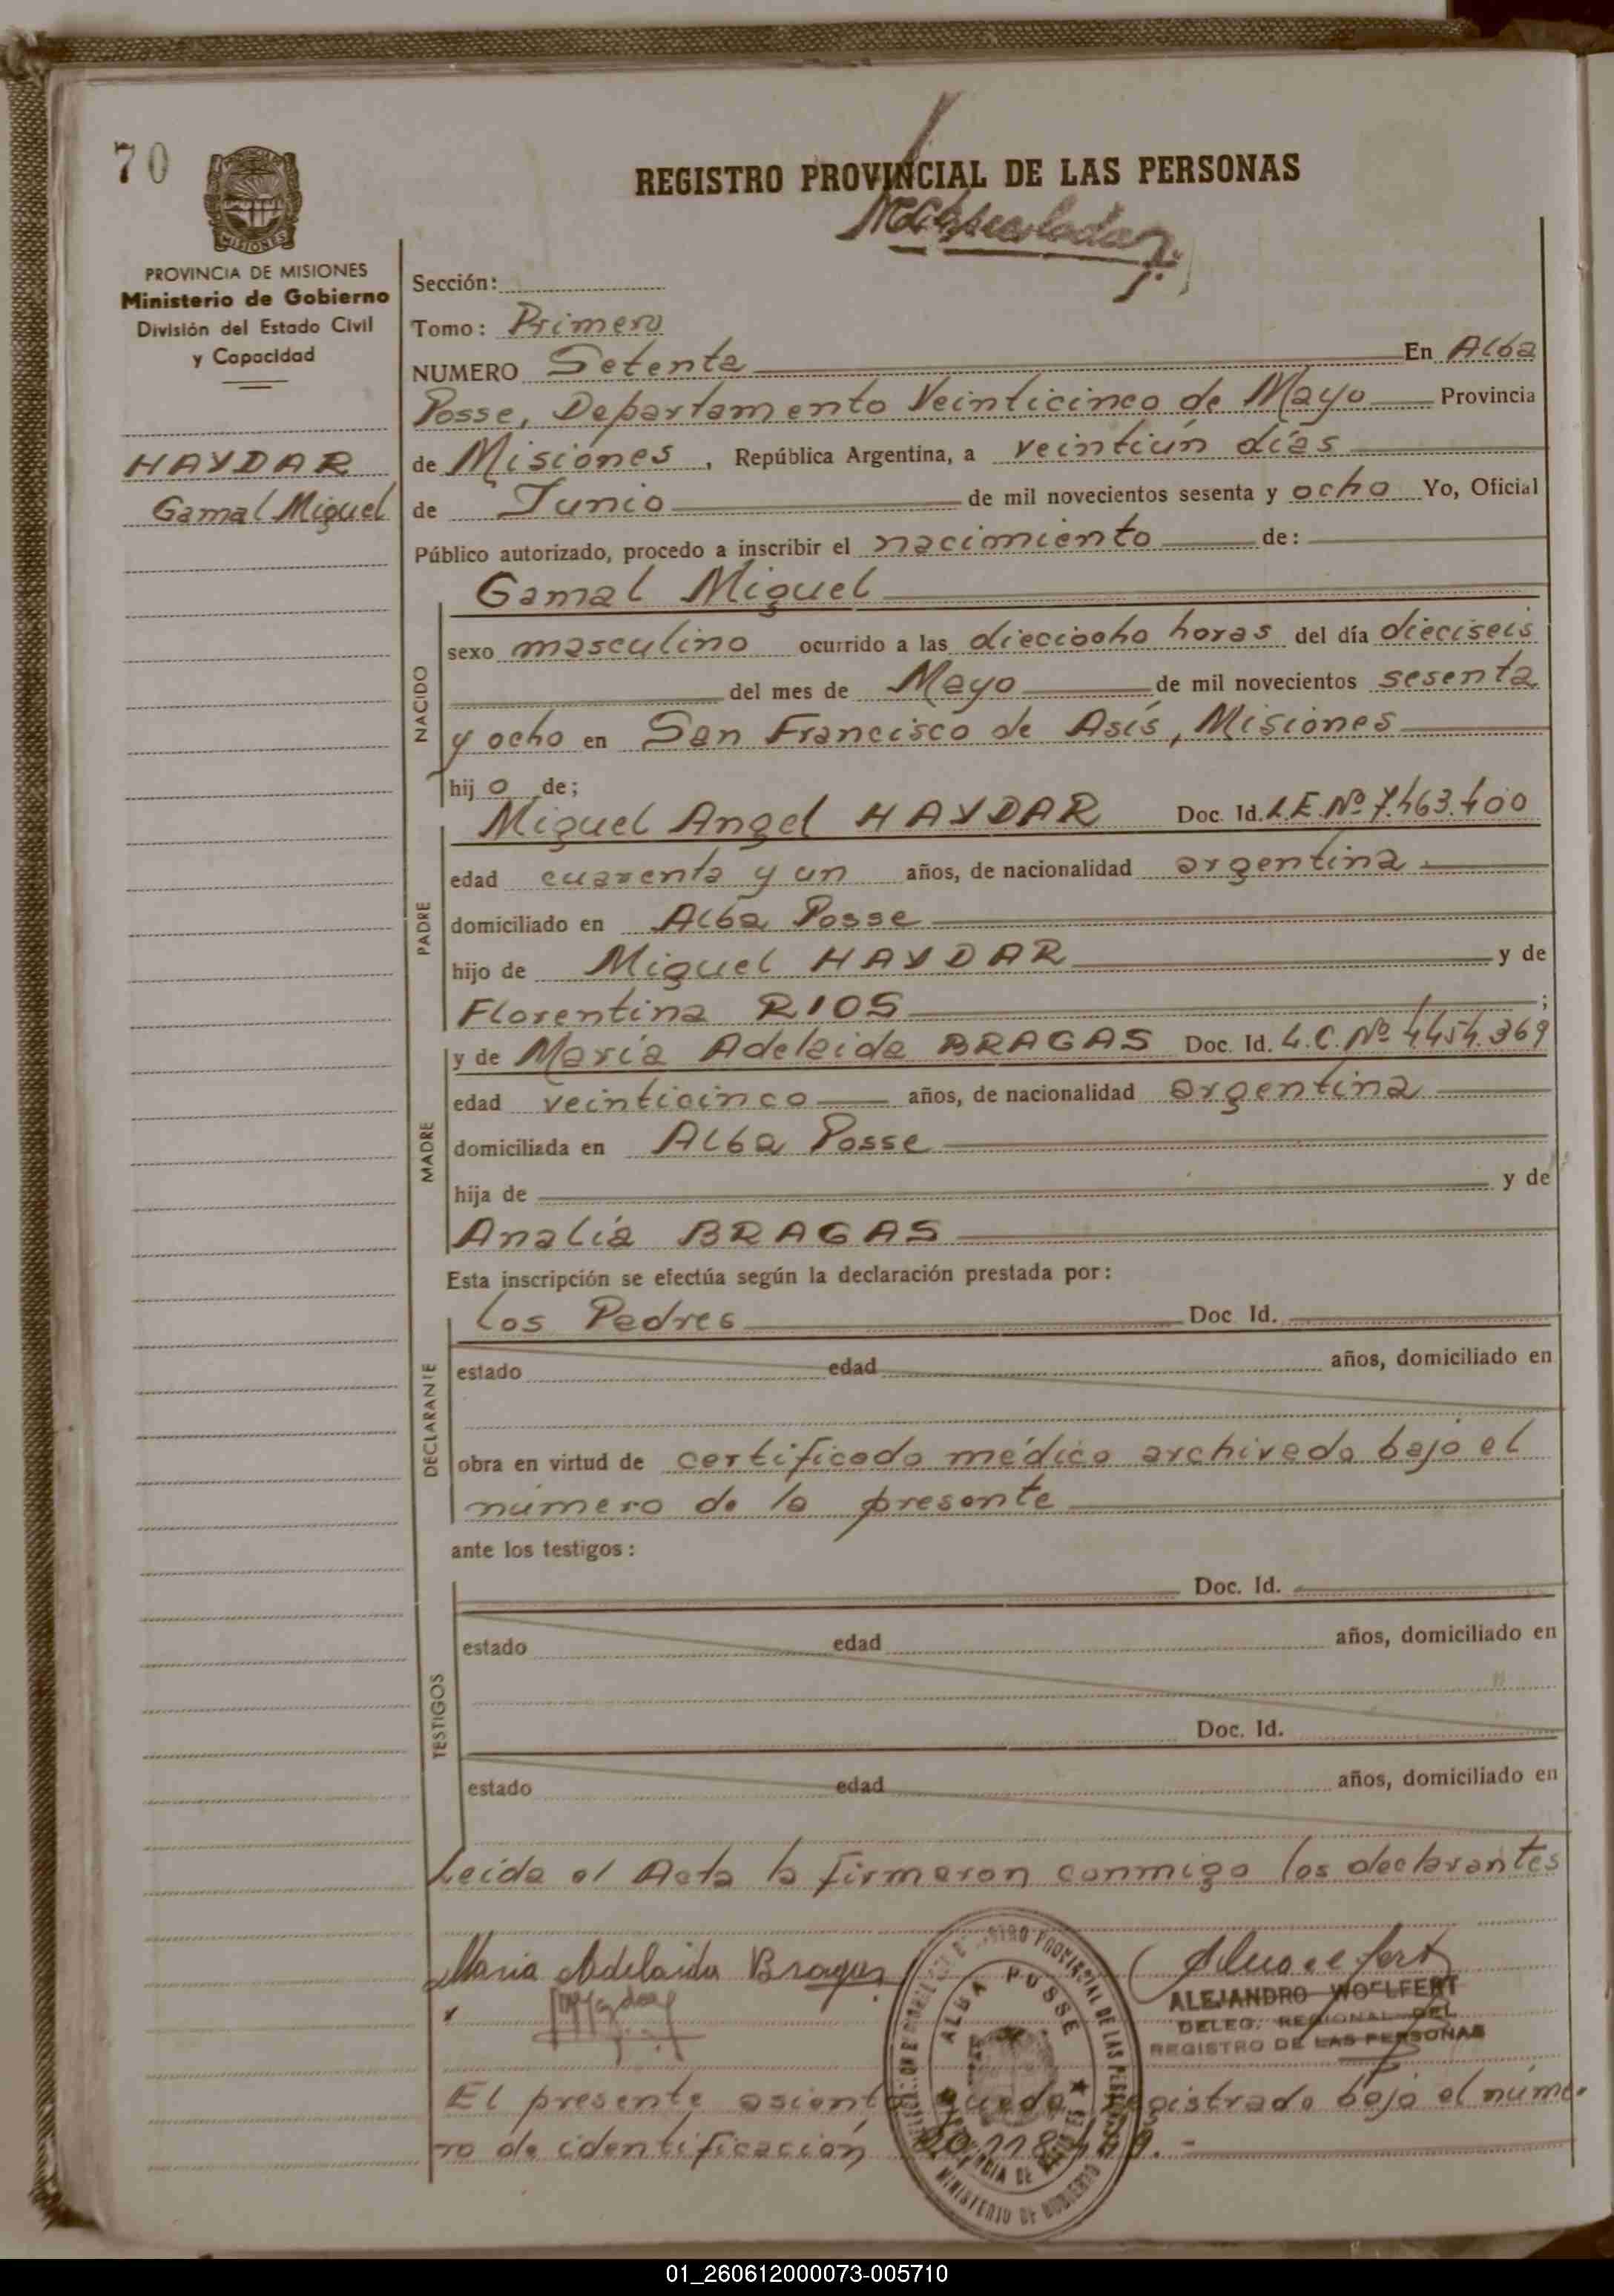 70
MISIONES
REGISTRO PROVINCIAL DE LAS PERSONAS
PROVINCIA DE MISIONES
Ministerio de Gobierno
División del Estado Civil
y Capacidad
HAYDAR
Gamal Miguel
Sección:
Tomo: Primero
NUMERO Setenta En Alba
Posse, Departamento Veinticinco de Mayo Provincia
de Misiones, República Argentina, a veintiún días
de Junio de mil novecientos sesenta y ocho Yo, Oficial
Público autorizado, procedo a inscribir el nacimiento de:
Gamal Miguel
NACIDO
sexo masculino ocurrido a las dieciocho horas del día dieciseis
del mes de Mayo de mil novecientos sesenta
y ocho en San Francisco de Asís, Misiones
hijo de;
Miguel Angel HAYDAR Doc. Id. L.E. Nº 7.463.400
PADRE
edad cuarenta y un años, de nacionalidad argentina
domiciliado en Alba Posse
hijo de Miguel HAYDAR y de
Florentina RIOS ;
y de María Adelaida BRAGAS Doc. Id. L.C. Nº 4.454.369
MADRE
edad veinticinco años, de nacionalidad argentina
domiciliada en Alba Posse
hija de y de
Analía BRAGAS
Esta inscripción se efectúa según la declaración prestada por:
los Padres Doc. Id.
DECLARANTE
estado edad años, domiciliado en
obra en virtud de certificado médico archivado bajo el
número de la presente
ante los testigos:
Doc. Id.
TESTIGOS
estado edad años, domiciliado en
Doc. Id.
estado edad años, domiciliado en
Leída el Acta la firmaron conmigo los declarantes
Maria Adelaida Bragas
ALEJANDRO WOELFERT
DELEG. REGIONAL DEL
REGISTRO DE LAS PERSONAS
ALBA POSSE
REGISTRO PROVINCIAL DE LAS PERSONAS
PROVINCIA DE MISIONES
MINISTERIO DE GOBIERNO
El presente asiento queda registrado bajo el núme-
ro de identificación
01_260612000073-005710